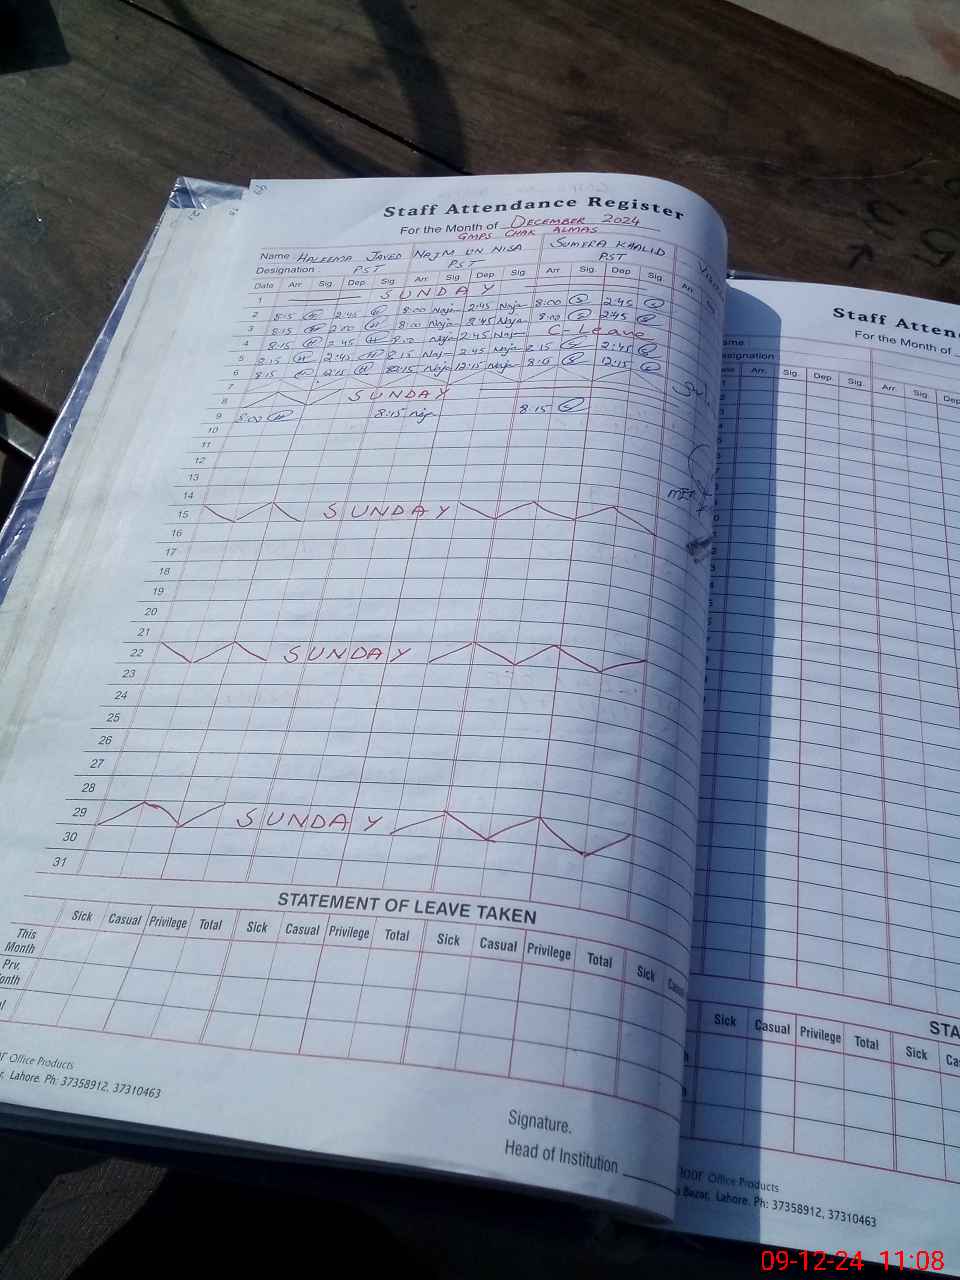 Staff Attendance Register
For the Month of DECEMBER 2024
GMPS CHAK ALMAS
Name HALEEMA JAVED NAJM UN NISA SUMERA KHALID
Designation PST PST PST
Date Arr. Sig. Dep. Sig. Arr. Sig. Dep. Sig. Arr. Sig. Dep. Sig. Arr.
1 SUNDAY
2 8:15 2:45 8:00 Naj 2:45 Naj 8:00 2:45
3 8:15 2:00 8:00 Naj 2:45 Naj 8:00 2:45
4 8:15 2:45 Naj 2:45 Naj C-Leave
5 8:15 2:45 8:15 Naj 2:45 Naj 8:15 2:45
6 8:15 12:15 Naj 12:15 Naj 12:15
7
8 SUNDAY
9 8:00 8:15 Naj 8:15
10
11
12
13
14
15 SUNDAY
16
17
18
19
20
21
22 SUNDAY
23
24
25
26
27
28
29 SUNDAY
30
31
STATEMENT OF LEAVE TAKEN
Sick Casual Privilege Total Sick Casual Privilege Total Sick Casual Privilege Total Sick
This Month
Prv.
Office Products
Lahore. Ph: 37358912, 37310463
Signature.
Head of Institution
Staff
For the Month of
Arr. Sig. Dep. Sig. Arr. Sig. Dep
Sick Casual Privilege Total Sick
Office Products
Bazar, Lahore. Ph: 37358912, 37310463
09-12-24 11:08